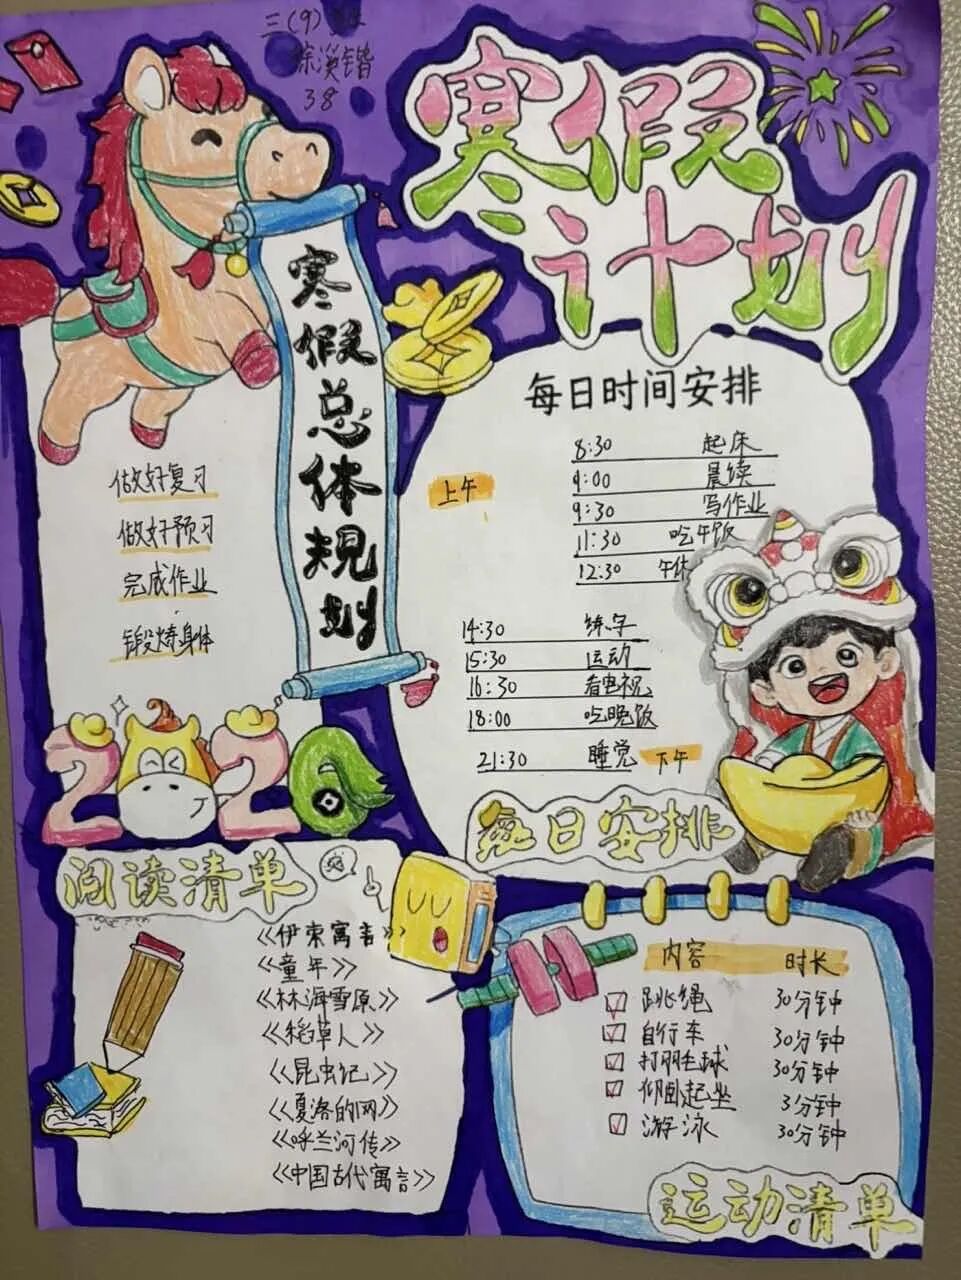 三(9)班
徐溪锴
38
寒假
计划
寒假总体规划
做好复习
做好预习
完成作业
锻炼身体
2026
每日时间安排
上午
8:30 起床
9:00 晨读
9:30 写作业
11:30 吃午饭
12:30 午休
14:30 练字
15:30 运动
16:30 看电视
18:00 吃晚饭
21:30 睡觉
下午
每日安排
阅读清单
《伊索寓言》
《童年》
《林海雪原》
《稻草人》
《昆虫记》
《夏洛的网》
《呼兰河传》
《中国古代寓言》
内容 时长
跳绳 30分钟
自行车 30分钟
打羽毛球 30分钟
仰卧起坐 3分钟
游泳 30分钟
运动清单